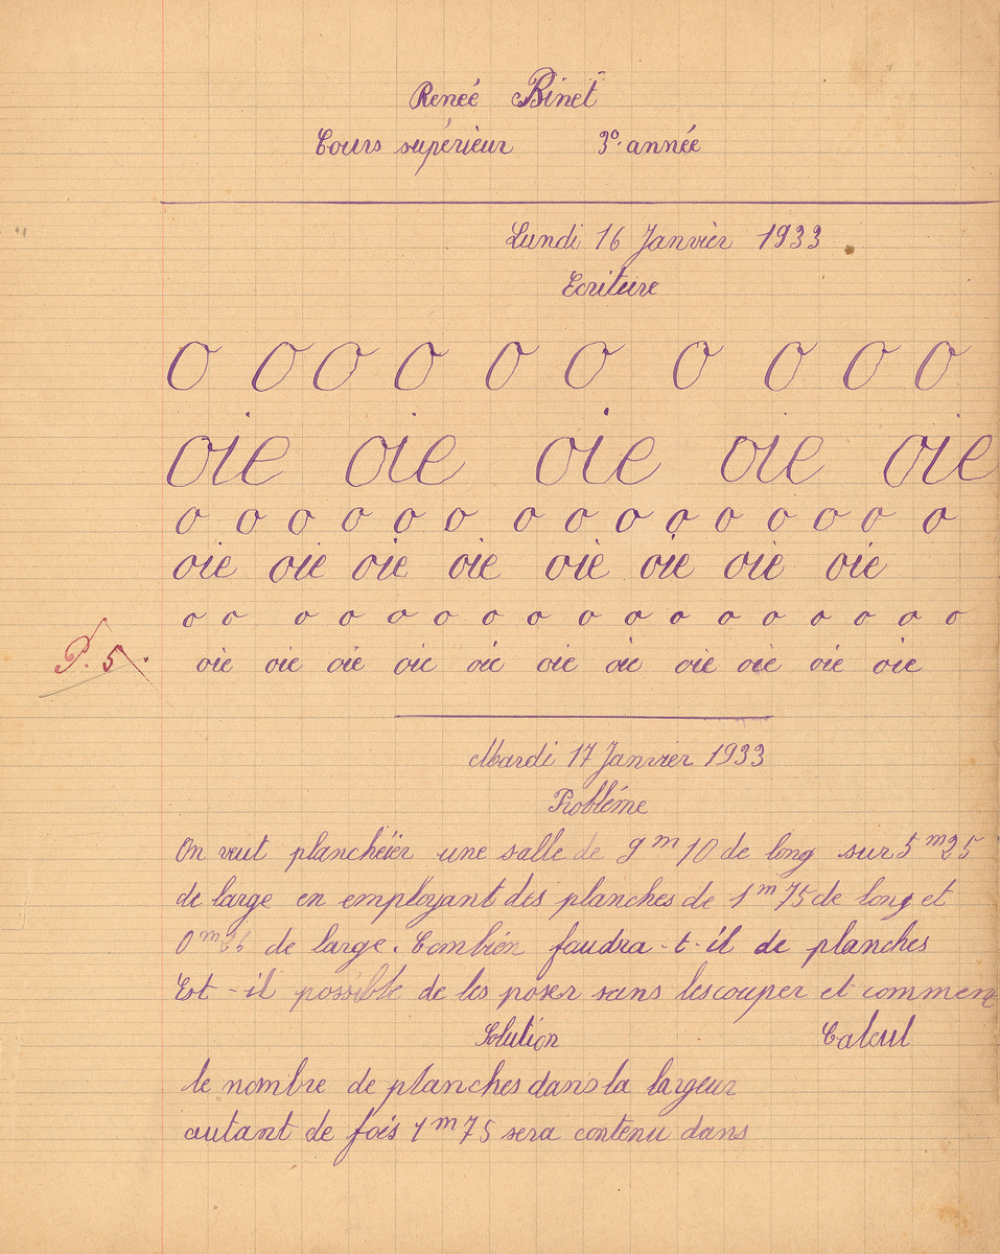 Reneé Binet
Cours supérieur 3e. année
Lundi 16 Janvier 1933
Ecriture
o o o o o o o o o o
oie oie oie oie oie
o o o o o o o o o o o o o o o
oie oie oie oie oie oie oie oie
o o o o o o o o o o o o o o o o o
P. 5
oie oie oie oie oie oie oie oie oie oie oie
Mardi 17 Janvier 1933
Problème
On veut plancheïer une salle de 9m10 de long sur 5m25
de large en employant des planches de 1m75 de long et
0m26 de large. Combien faudra-t-il de planches
Est-il possible de les poser sans lescouper et comment
Solution Calcul
le nombre de planches dans la largeur
autant de fois 1m75 sera contenu dans